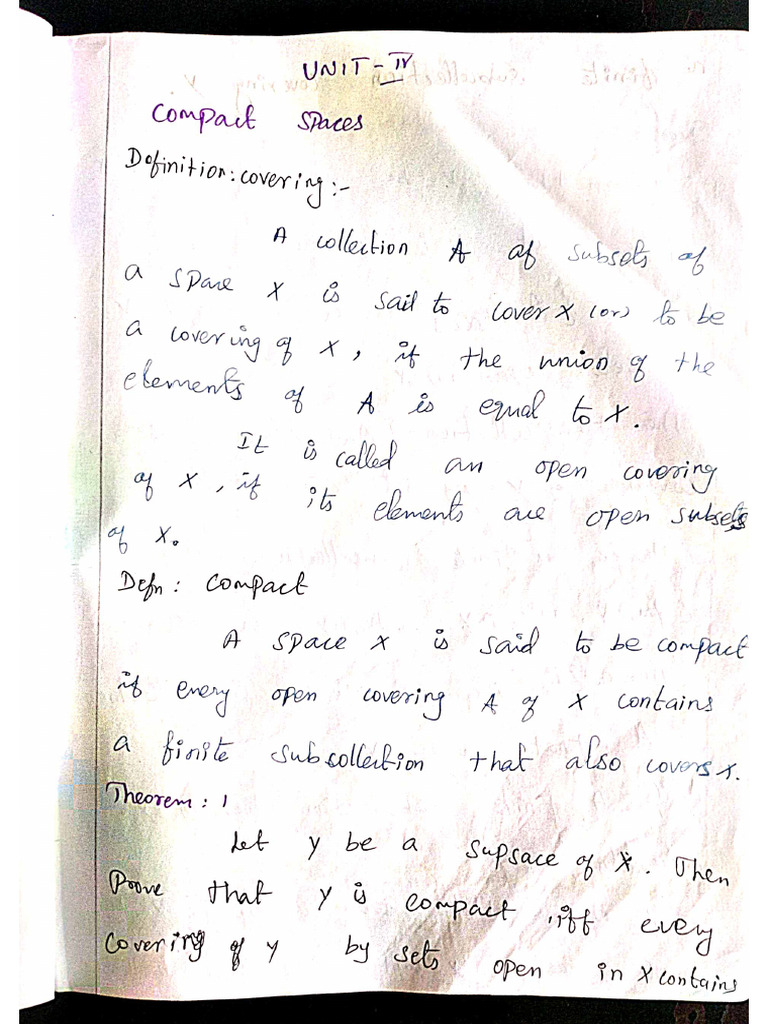 UNIT - IV
Compact Spaces
Definition: covering:-
A collection A of subsets of
a space X is said to cover X (or) to be
a covering of X, if the union of the
elements of A is equal to X.
It is called an open covering
of X, if its elements are open subsets
of X.
Defn: Compact
A space X is said to be compact
if every open covering A of X contains
a finite subcollection that also covers X.
Theorem: 1
Let y be a supsace of X. Then
Prove that y is compact, iff every
Covering of y by sets open in X contains